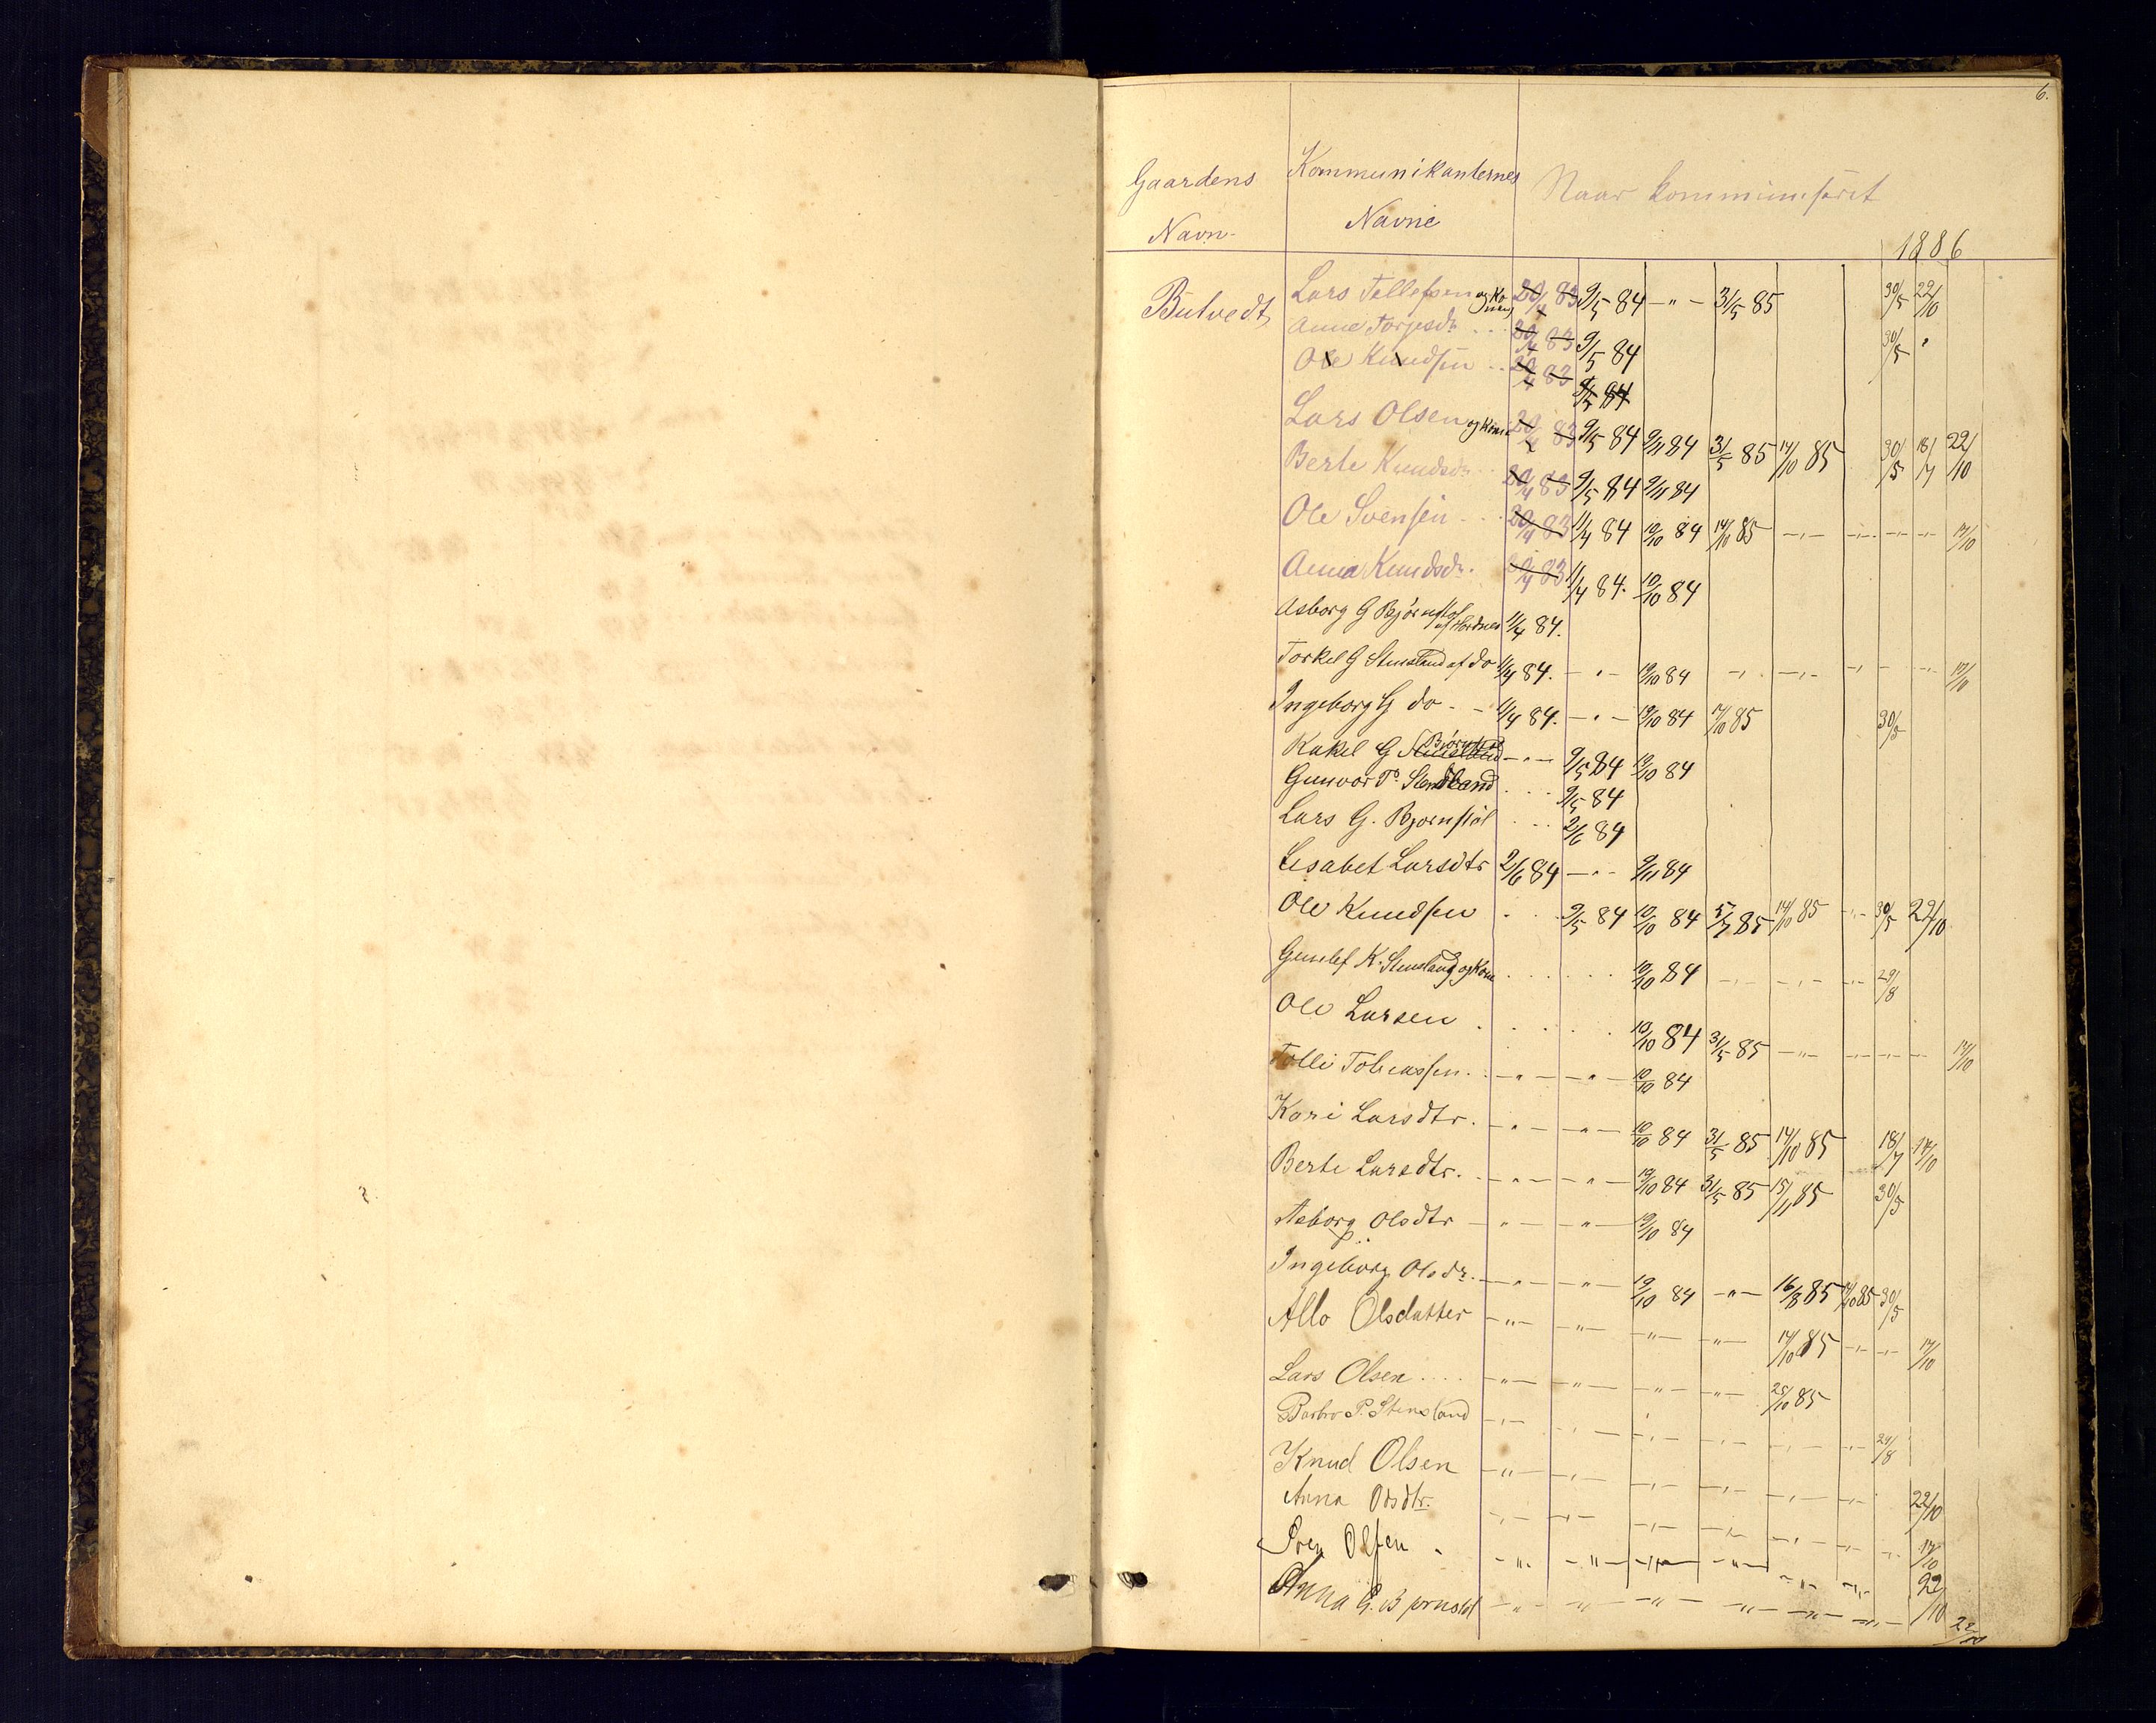 6.
Gaardens Navn
Kommunikanternes Navne
Naar kommuniseret
1886
Butvedt
Lars Tellefsen og Konen 20/4 83 9/5 84 – " – 31/5 85 30/5 22/10
Anne Torjesdr. . . . 20/4 83 9/5 84 30/5 "
Ole Knudsen . . 20/4 83 9/5 84
Lars Olsen og Kone 20/4 83 9/5 84 9/11 84 31/5 85 14/10 85 30/5 18/7 22/10
Berte Knudsdr. . . 20/4 83 9/5 84 9/11 84
Ole Svensen . . . 20/4 83 1/4 84 10/10 84 14/10 85 – " – – " – – " – – " – 17/10
Anna Knudsdr. . 20/4 83 1/4 84. 10/10 84
Asborg G Bjørnstøl af Herdnes 1/4 84.
Torkel G Stensland af do 1/4 84. – " – 10/10 84 – " – – " – – " – – – – " – 17/10
Ingeborg G do . – 1/4 84. – " – 10/10 84 14/10 85 30/5
Bjørnstøl
Rakel G Stensland – " – 9/5 84 10/10 84
Gunvor T. Stensland . . . 9/5 84
Lars G. Bjørnstøl . . . 2/6 84
Lisabet Larsdtr 2/6 84 – " – 9/11 84
Ole Knudsen . . . 9/5 84 10/10 84 5/7 85 14/10 85 – " – 30/5 22/10
Gunlef K. Stensland og Kone . . . . . . 10/10 84 – " – – " – – " – 29/8
Ole Larsen . . . . . . 10/10 84 31/5 85 – " – – " – – " – – " – 17/10
Tolli Tobiassen . . – " – – " – 10/10 84
Kari Larsdtr. . – " – – " – 10/10 84 31/5 85 14/10 85 18/7 17/10
Berte Larsdtr. . – " – – " – 10/10 84 31/5 85 15/11 85 30/5
Asborg Olsdtr – " – – " – 10/10 84
Ingeborg Olsdr. – " – – " – 10/10 84 – " – 16/8 85 14/10 85 30/5
Allo Olsdatter – " – – " – – " – – " – 14/10 85 – " – – " – 17/10
Lars Olsen . . . . – " – – " – – " – – " – 25/10 85
Barbro P. Stensland – " – – " – – " – – " – – " – – " – 29/8
Knud Olsen – " – – " – – " – – " – – " – – " – 22/10
Anna Olsdtr. – " – – " – – " – – " – – " – – " – – " – 17/10
Sven Olsen . – " – – " – – " – – " – – " – – " – 22/10
Anna G. Bjørnstøl – " – – " – – " – – " – – " – – " – 22/10